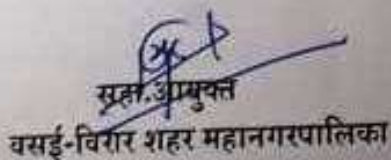 सहा.आयुक्त
वसई-विरार शहर महानगरपालिका